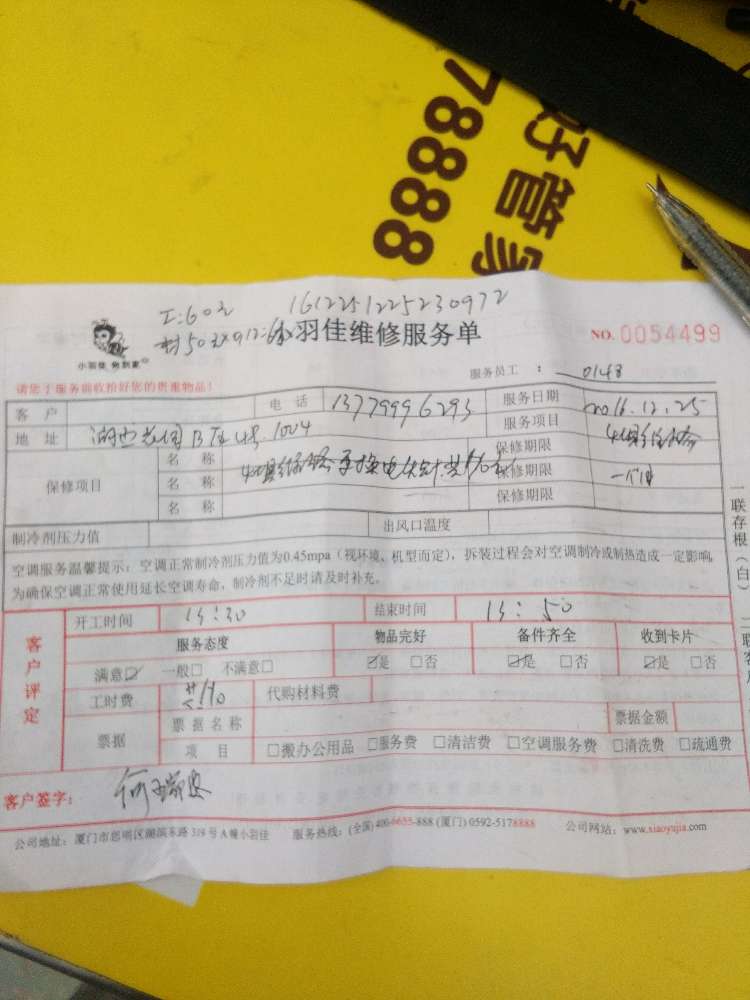 好管家
78888
1612251225230972
工:60元
小羽佳维修服务单
NO. 0054499
小羽佳 佣到家
请您于服务前收拾好您的贵重物品!
服务员工 : 0148
客 户 电 话 13779996293 服务日期 2016.12.25
地 址 湖边花园B区 1004 服务项目
保修项目 名 称 保修期限
名 称 保修期限 一个月
名 称 保修期限
制冷剂压力值 出风口温度
空调服务温馨提示:空调正常制冷剂压力值为0.45mpa(视环境、机型而定),拆装过程会对空调制冷或制热造成一定影响,
为确保空调正常使用延长空调寿命,制冷剂不足时请及时补充。
一联存根(白)
客户评定
开工时间 13:30 结束时间 13:50
服务态度 物品完好 备件齐全 收到卡片
满意☑ 一般□ 不满意□ ☑是 □否 ☑是 □否 ☑是 □否
工时费 代购材料费
票据 票据名称 票据金额
项 目 □搬办公用品 □服务费 □清洁费 □空调服务费 □清洗费 □疏通费
客户签字:
公司地址:厦门市思明区湖滨东路319号A幢小羽佳 服务热线:(全国)400-6655-888 (厦门) 0592-5178888 公司网站:www.xiaoyujia.com